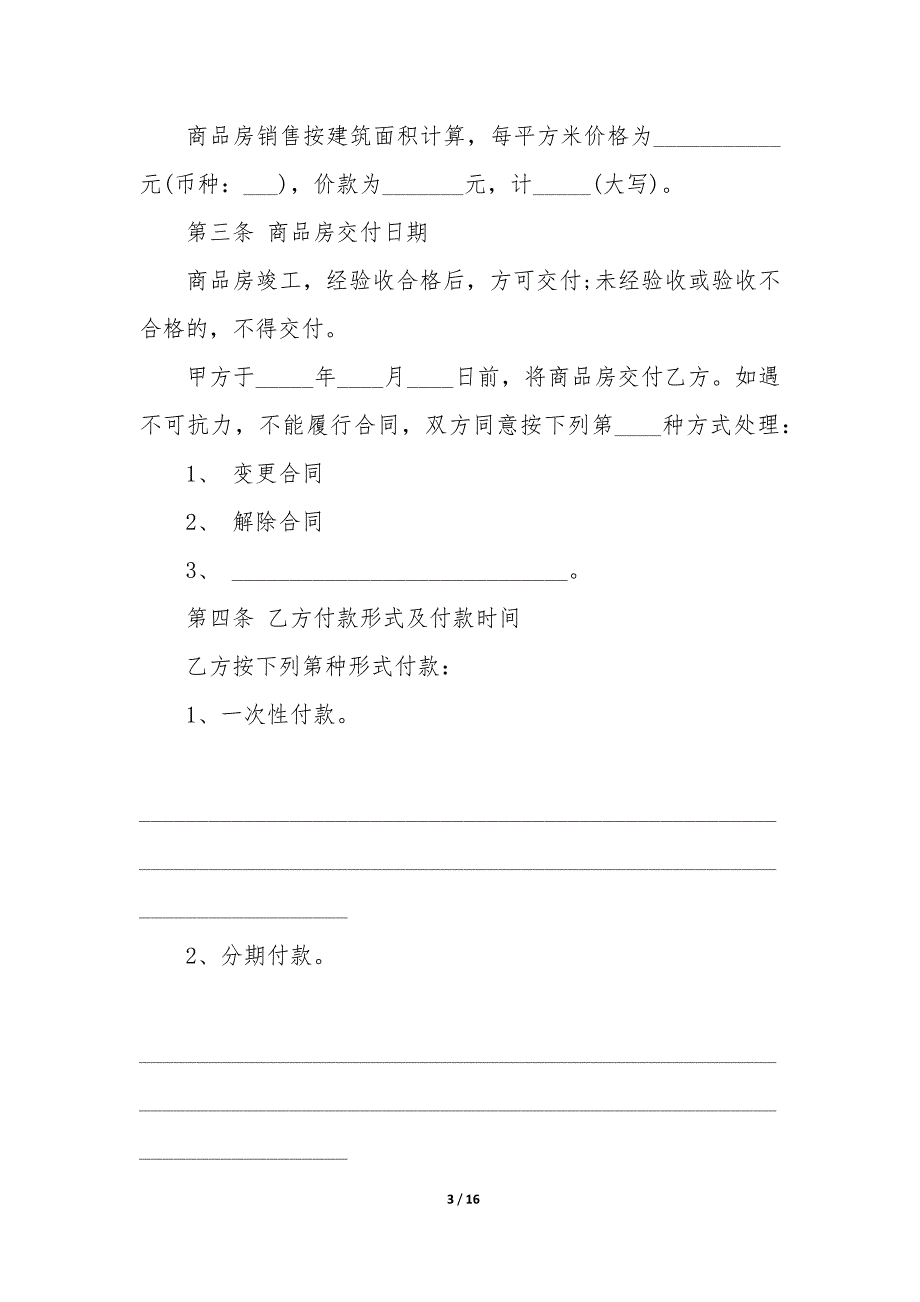 商品房销售按建筑面积计算，每平方米价格为___________
元(币种：___)，价款为_______元，计_____(大写)。
第三条 商品房交付日期
商品房竣工，经验收合格后，方可交付;未经验收或验收不
合格的，不得交付。
甲方于_____年____月____日前，将商品房交付乙方。如遇
不可抗力，不能履行合同，双方同意按下列第____种方式处理：
1、 变更合同
2、 解除合同
3、 _____________________________。
第四条 乙方付款形式及付款时间
乙方按下列第种形式付款：
1、一次性付款。
_______________________________________________________
_______________________________________________________
__________________
2、分期付款。
_______________________________________________________
_______________________________________________________
__________________
3 / 16